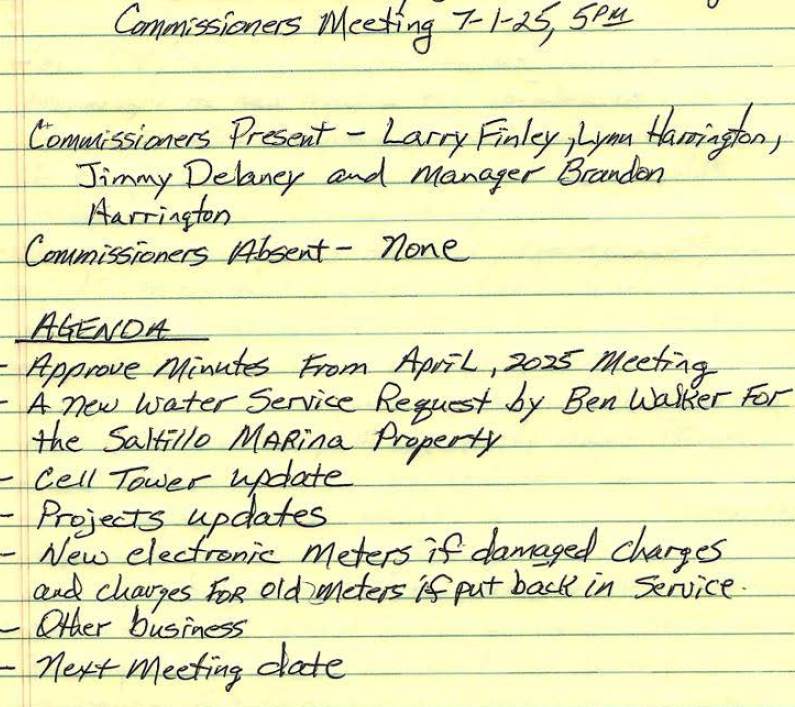 Commissioners Meeting 7-1-25, 5PM
Commissioners Present - Larry Finley, Lynn Harrington,
Jimmy Delaney and Manager Brandon
Harrington
Commissioners Absent - None
AGENDA
- Approve Minutes From April, 2025 Meeting
- A new Water Service Request by Ben Walker For
the Saltillo MARina Property
- Cell Tower update
- Projects updates
- New electronic meters if damaged charges
and charges FOR old meters if put back in Service.
- Other business
- Next Meeting date